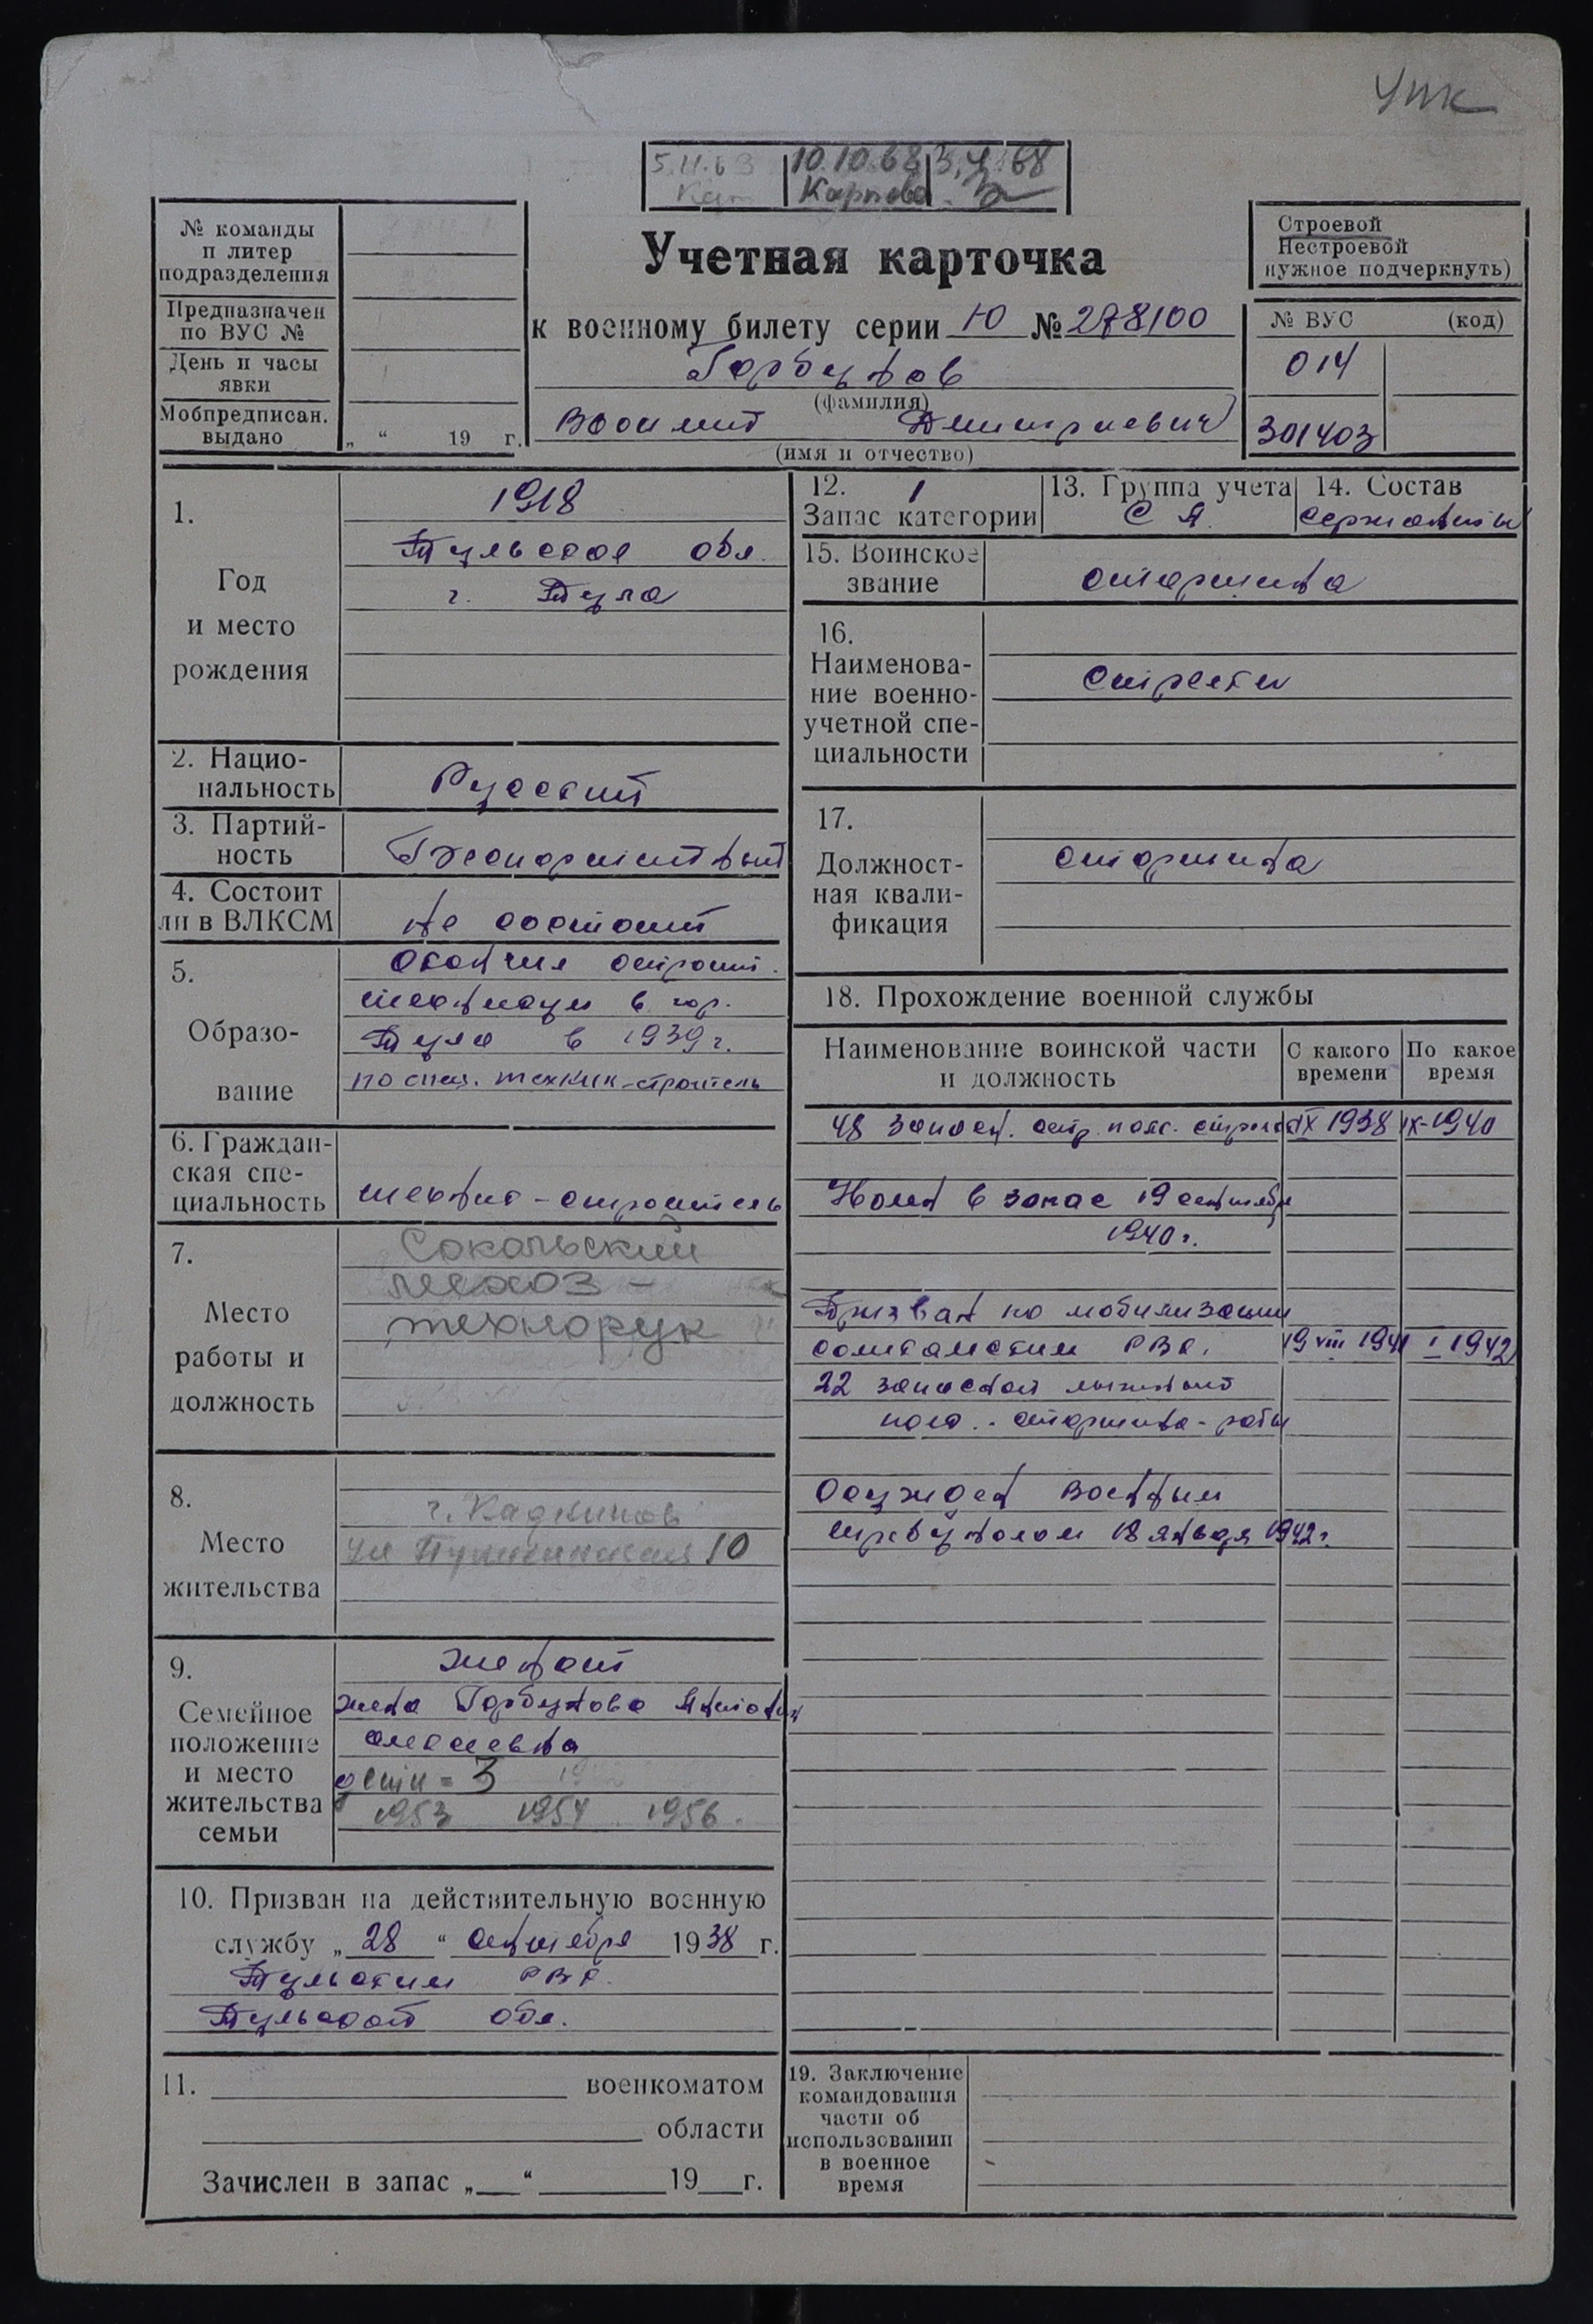 УПК
5.11.63 10.10.68 3.4.68
Карпова
№ команды
и литер
подразделения
Предназначен
по ВУС №
День и часы
явки
Мобпредписан.
выдано „ “ 19 г.
Учетная карточка
к военному билету серии Ю № 278100
Горбунов
(фамилия)
Дмитриевич
(имя и отчество)
Строевой
Нестроевой
нужное подчеркнуть)
№ ВУС (код)
014
301403
1.
Год
и место
рождения
1918
Тульская обл.
г. Тула
2. Нацио-
нальность
Русский
3. Партий-
ность
Беспартийный
4. Состоит
ли в ВЛКСМ
не состоит
5.
Образо-
вание
Окончил строит.
техникум в гор.
Тула в 1939 г.
по спец. техник-строитель
6. Граждан-
ская спе-
циальность
техник-строитель
7.
Место
работы и
должность
Сокольский
лесхоз -
технорук
8.
Место
жительства
г. Кадников
ул Пушкинская 10
9.
Семейное
положение
и место
жительства
семьи
женат
жена Горбунова
дети = 3
1953 1954 1956.
10. Призван на действительную военную
службу „ 28 “ сентября 1938 г.
Тульским РВК.
Тульской обл.
11. военкоматом
области
Зачислен в запас „ “ 19 г.
12. 1
Запас категории
13. Группа учета
С А
14. Состав
сержанты
15. Воинское
звание
старшина
16.
Наименова-
ние военно-
учетной спе-
циальности
стрелки
17.
Должност-
ная квали-
фикация
старшина
18. Прохождение военной службы
Наименование воинской части
и должность
С какого
времени
По какое
время
48 запасн. стр. полк. стрелок IX 1938 IX-1940
Уволен в запас 19 сентября
1940 г.
Призван по мобилизации
Сокольским РВК. 19 VIII 1941 I 1942
22 запасной лыжный
полк. - старшина - роты
Осужден Военным
трибуналом 18 января 1942 г.
19. Заключение
командования
части об
использовании
в военное
время